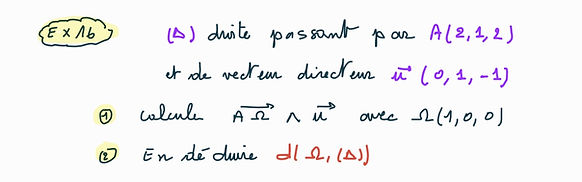 Ex 1b (Δ) droite passant par A(2,1,2)
et de vecteur directeur u⃗ (0,1,-1)
① calculer AΩ⃗ ∧ u⃗ avec Ω(1,0,0)
② En déduire d(Ω,(Δ))